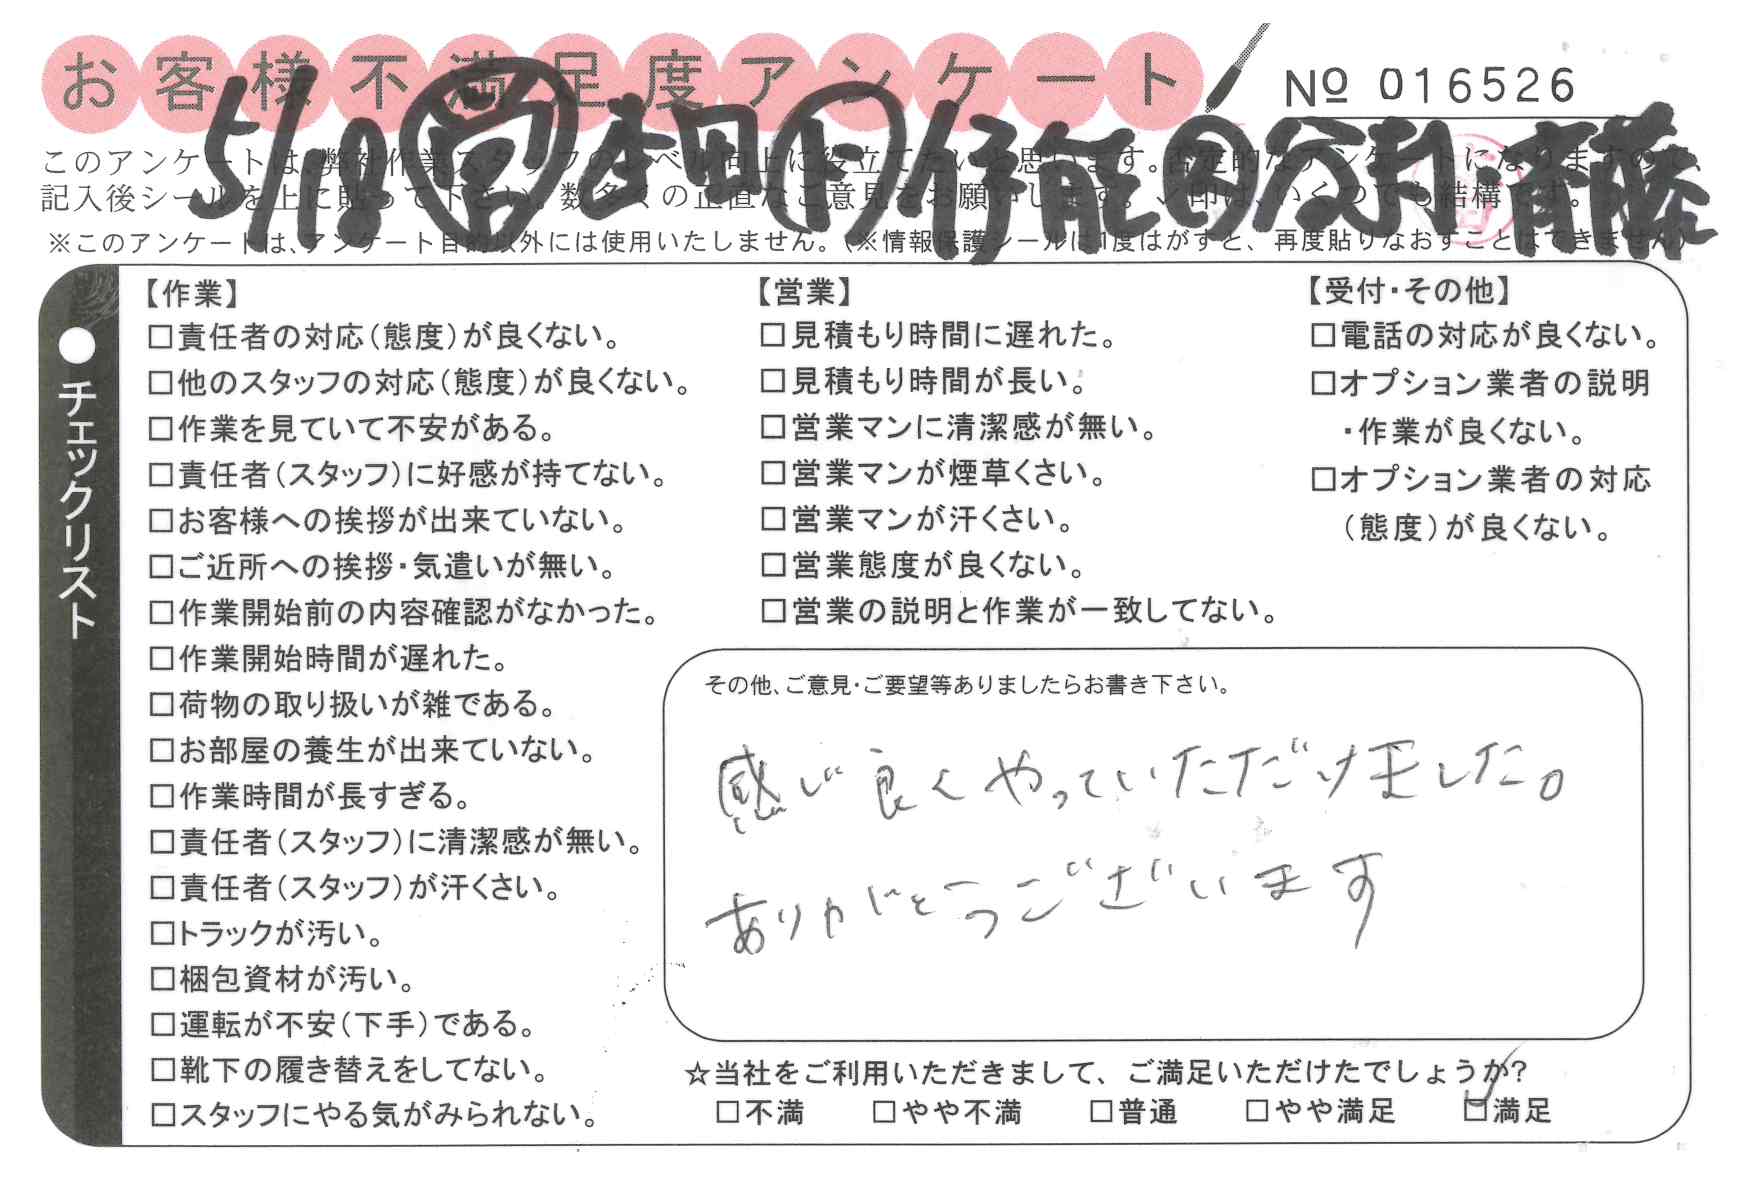 お客様不満足度アンケート
№ 016526
5/18 営 本田 ト 伊能 分部 斎藤
このアンケートは、弊社作業スタッフのレベル向上に役立てたいと思います。否定的なアンケートになりますので、
記入後シールを上に貼って下さい。数多くの正直なご意見をお願いします。✓印は、いくつでも結構です。
※このアンケートは、アンケート目的以外には使用いたしません。(※情報保護シールは1度はがすと、再度貼りなおすことはできません)
●チェックリスト
【作業】
□責任者の対応(態度)が良くない。
□他のスタッフの対応(態度)が良くない。
□作業を見ていて不安がある。
□責任者(スタッフ)に好感が持てない。
□お客様への挨拶が出来ていない。
□ご近所への挨拶・気遣いが無い。
□作業開始前の内容確認がなかった。
□作業開始時間が遅れた。
□荷物の取り扱いが雑である。
□お部屋の養生が出来ていない。
□作業時間が長すぎる。
□責任者(スタッフ)に清潔感が無い。
□責任者(スタッフ)が汗くさい。
□トラックが汚い。
□梱包資材が汚い。
□運転が不安(下手)である。
□靴下の履き替えをしてない。
□スタッフにやる気がみられない。
【営業】
□見積もり時間に遅れた。
□見積もり時間が長い。
□営業マンに清潔感が無い。
□営業マンが煙草くさい。
□営業マンが汗くさい。
□営業態度が良くない。
□営業の説明と作業が一致してない。
【受付・その他】
□電話の対応が良くない。
□オプション業者の説明
・作業が良くない。
□オプション業者の対応
(態度)が良くない。
その他、ご意見・ご要望等ありましたらお書き下さい。
感じ良くやっていただけました。
ありがとうございます
☆当社をご利用いただきまして、ご満足いただけたでしょうか?
□不満 □やや不満 □普通 □やや満足 ☑満足